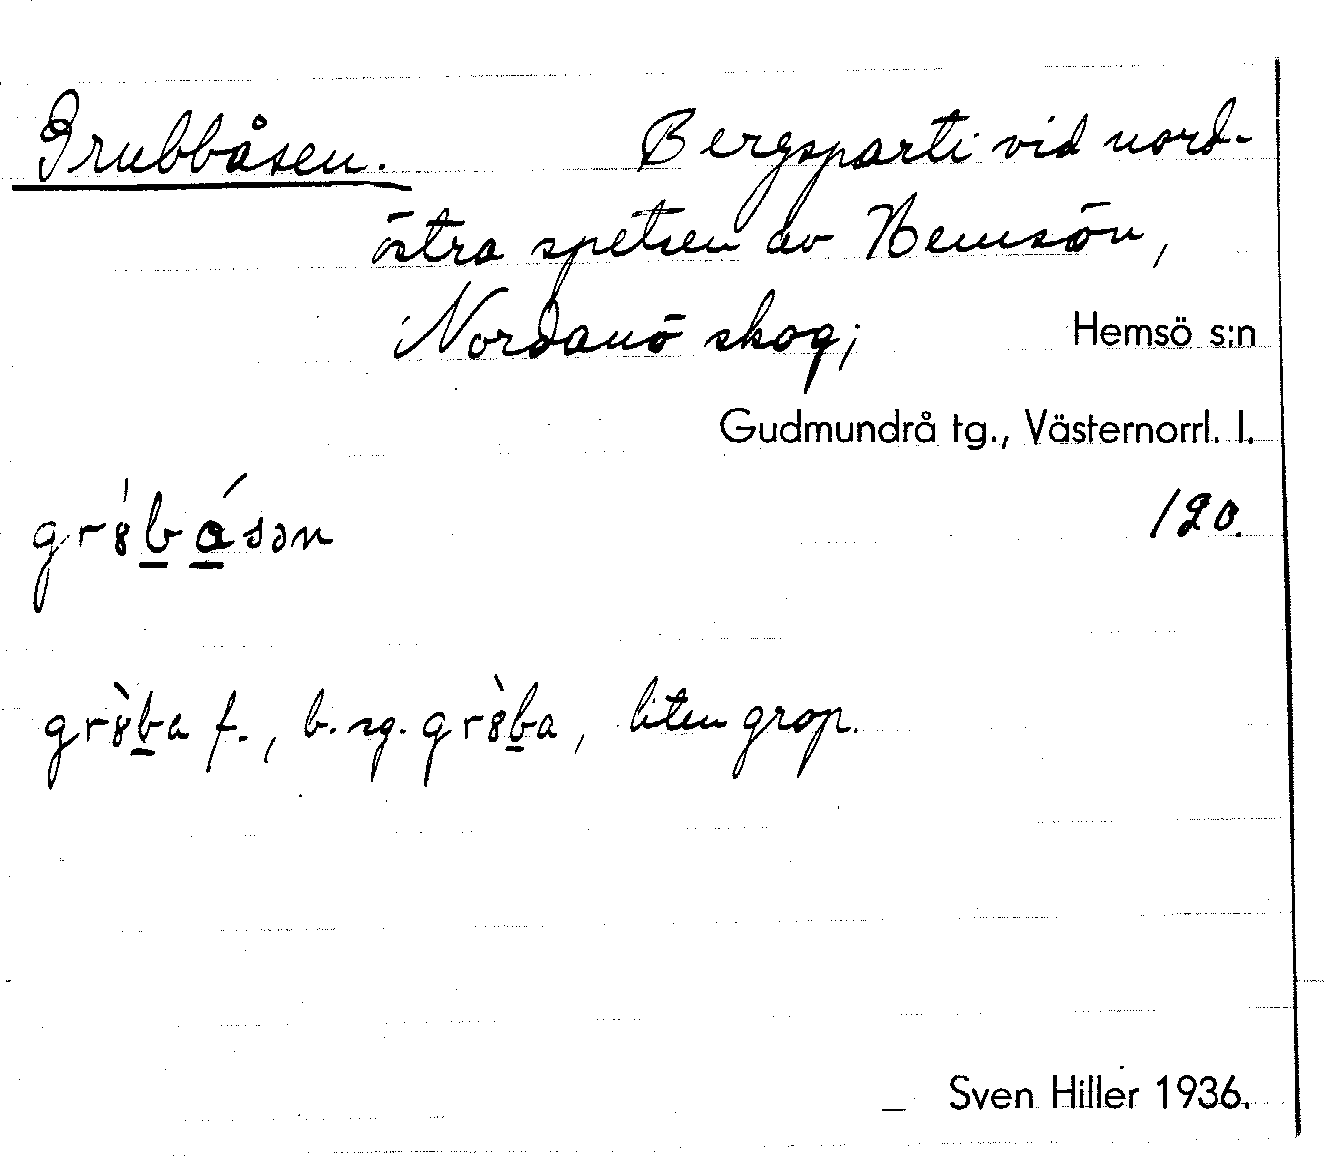 Grubbåsen. Bergsparti vid nord-
östra spetsen av Hemsön,
Nordanö skog; Hemsö s:n
Gudmundrå tg., Västernorrl. l.
120.
f., b. sg. liten grop.
Sven Hiller 1936.